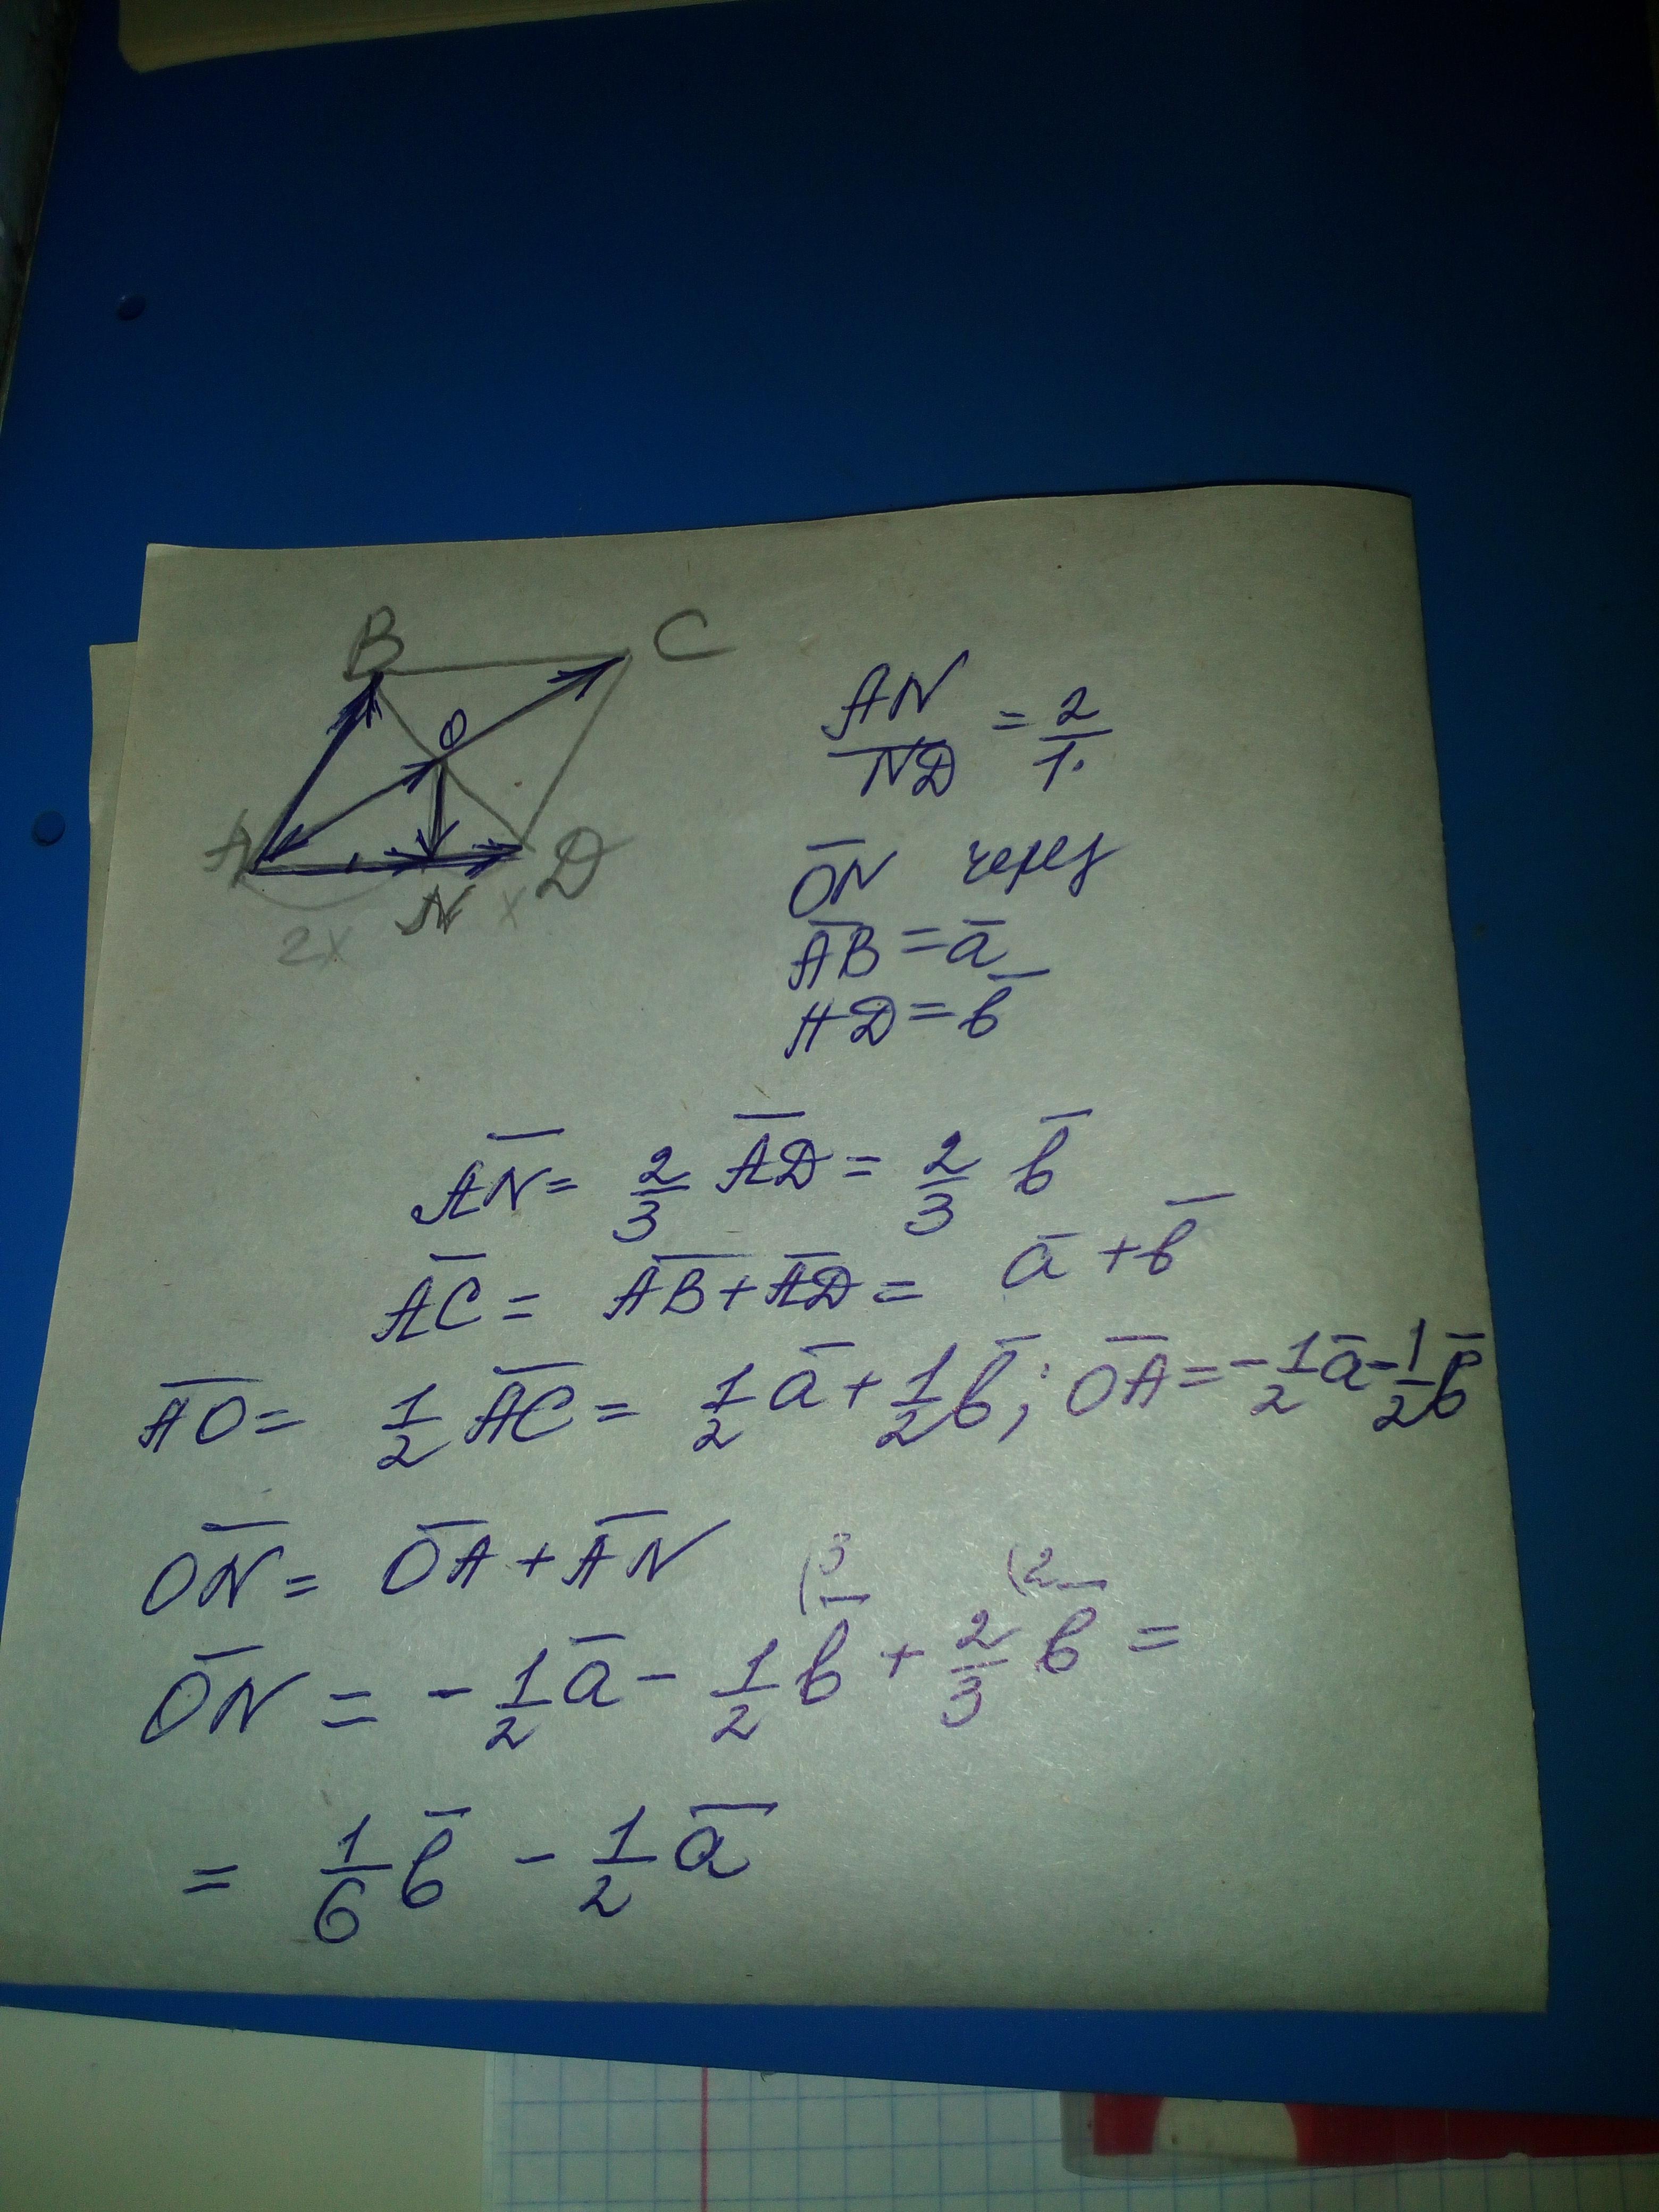 B C
O
A N D
2x x
AN/ND = 2/1.
O̅N̅ через
A̅B̅ = a̅
AD = b̅
A̅N̅ = 2/3 A̅D̅ = 2/3 b̅
A̅C̅ = A̅B̅ + A̅D̅ = a̅ + b̅
A̅O̅ = 1/2 A̅C̅ = 1/2 a̅ + 1/2 b̅; O̅A̅ = -1/2 a̅ - 1/2 b̅
O̅N̅ = O̅A̅ + A̅N̅
(3 (2
O̅N̅ = - 1/2 a̅ - 1/2 b̅ + 2/3 b̅ =
= 1/6 b̅ - 1/2 a̅